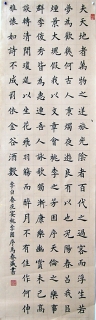 夫天地者萬物之逆旅光陰者百代之過客而浮生若
夢為歡幾何古人秉燭夜遊良有以也況陽春召我以
煙景大塊假我以文章會桃李之芳園序天倫之樂事
群季俊秀皆為惠連吾人詠歌獨慚康樂幽賞未已高
談轉清開瓊筵以坐花飛羽觴而醉月不有佳作何伸
雅懷如詩不成罰依金谷酒數 李白春夜宴桃李園序 書